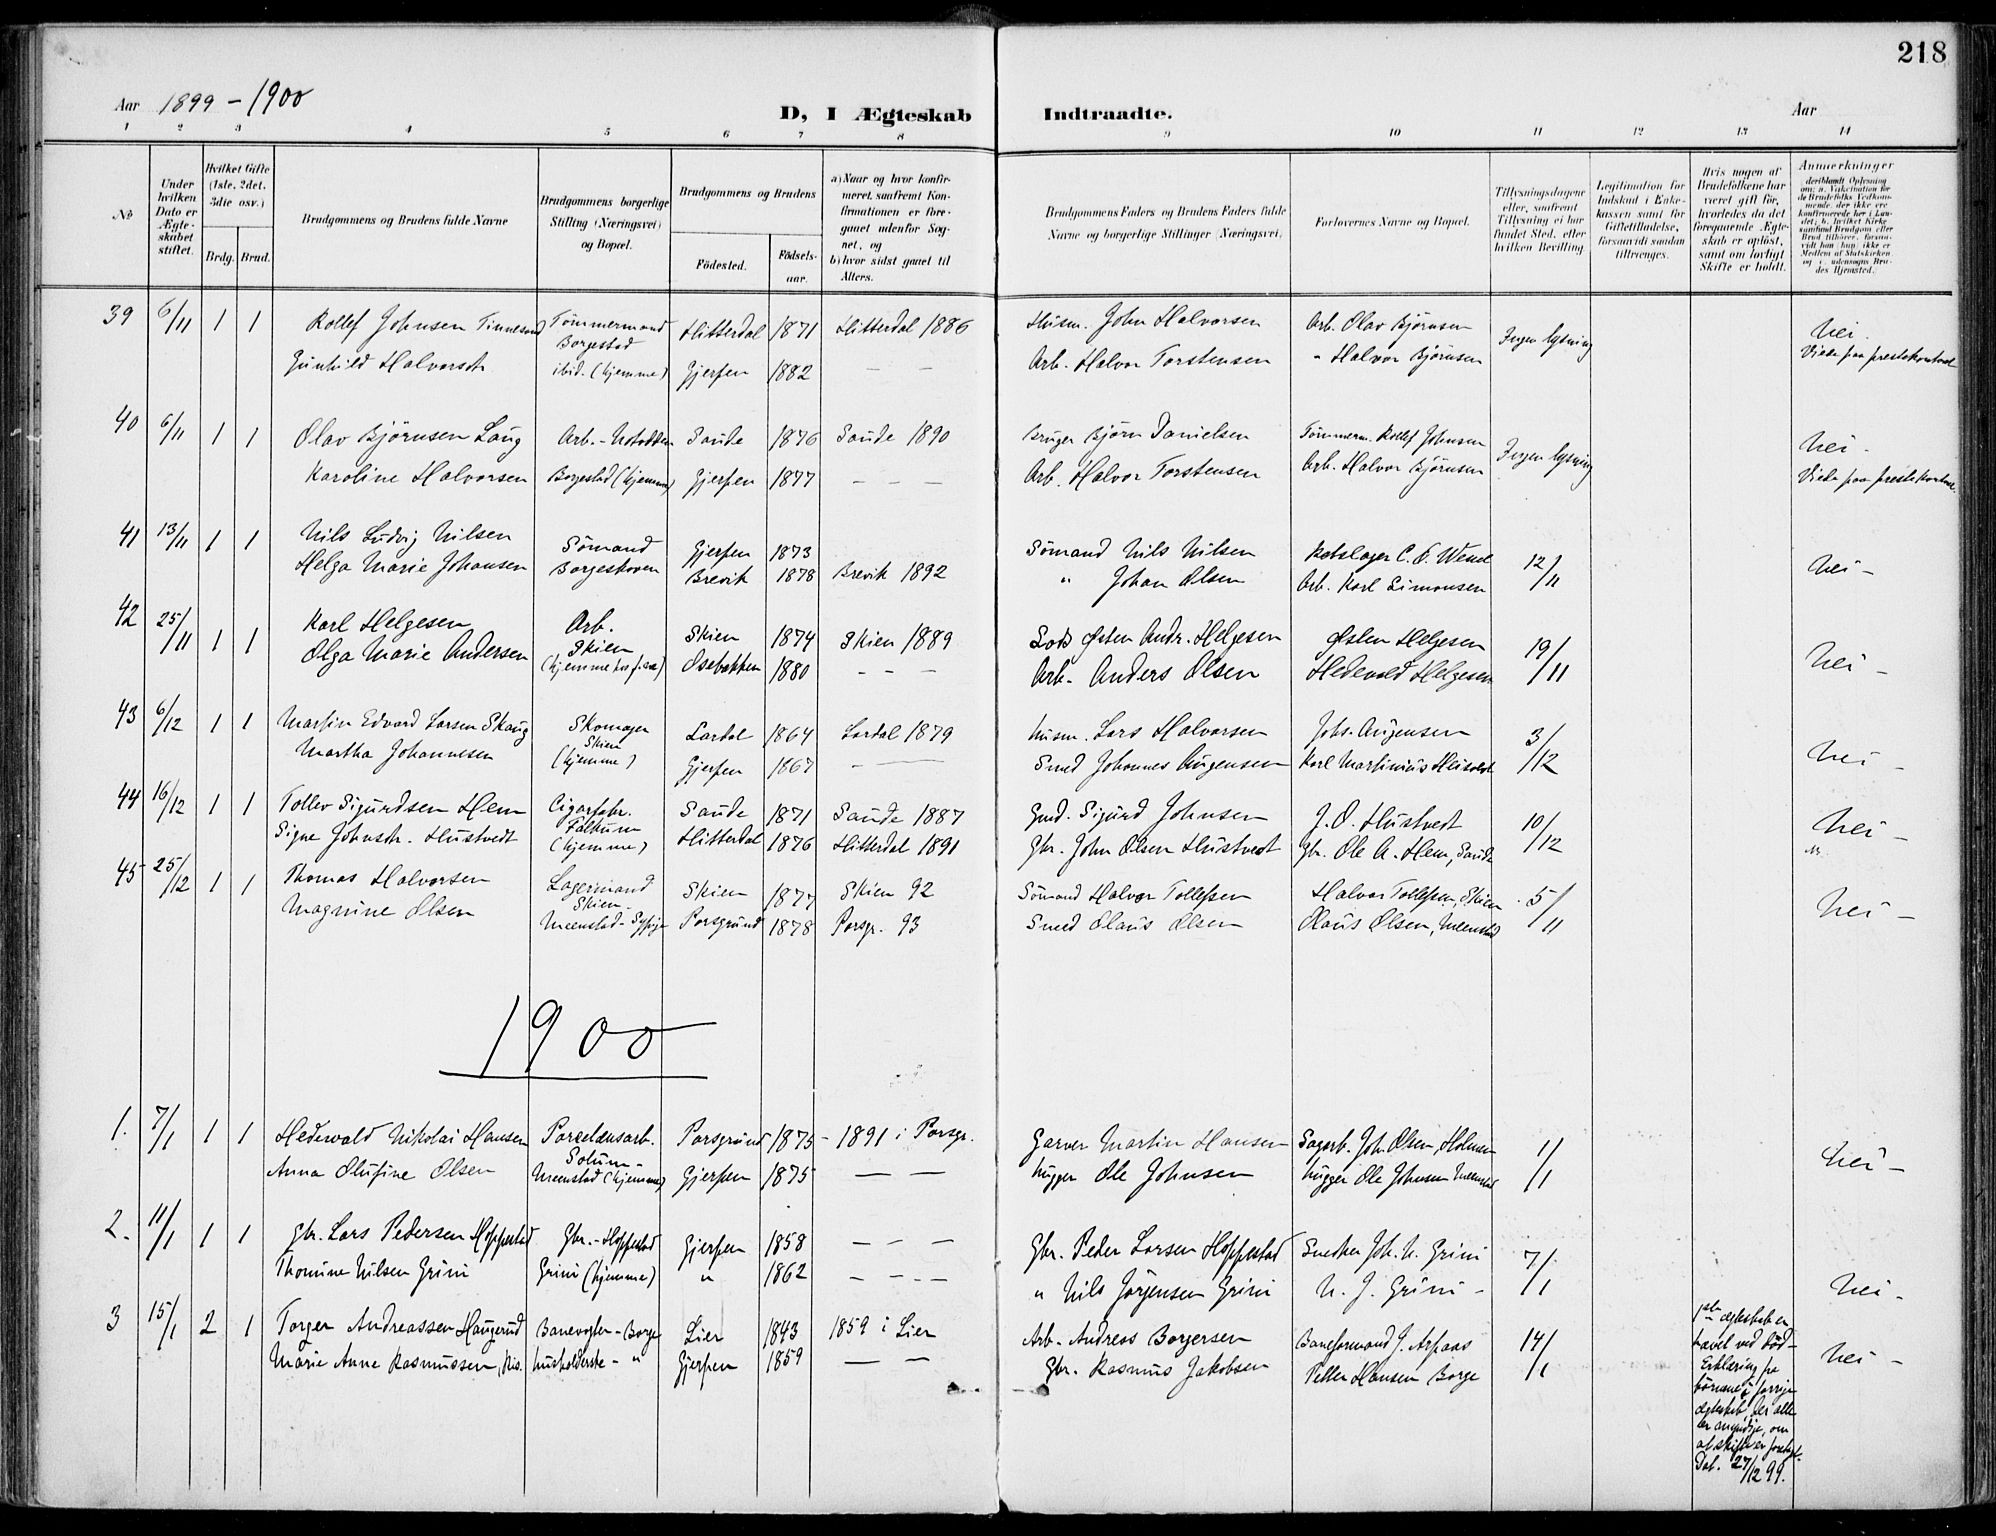 218
Aar 1899 - 1900
D, I Ægteskab Indtraadte.
Aar
1 2 3 4 5 6 7 8 9 10 11 12 13 14
No
Under hvilken Dato er Ægteskabet stiftet.
Hvilket Gifte (1ste, 2det, 3die osv.)
Brdg. Brud.
Brudgommens og Brudens fulde Navne
Brudgommens borgerlige Stilling (Næringsvei) og Bopæl.
Brudgommens og Brudens
Födested. Födselsaar.
a) Naar og hvor konfirmeret, saafremt Konfirmationen er foregaaet udenfor Sognet, og
b) hvor sidst gaaet til Alters.
Brudgommens Faders og Brudens Faders fulde Navne og borgerlige Stillinger (Næringsvei)
Forlovernes Navne og Bopæl.
Tillysningsdagene eller, saafremt Tillysning ei har fundet Sted, efter hvilken Bevilling
Legitimation for Indskud i Enkekassen samt for Giftetilladelse, forsaavidt saadan tiltrænges.
Hvis nogen af Brudefolkene har været gift før, hvorledes da det foregaaende Ægteskab er opløst, samt om lovligt Skifte er holdt.
Anmerkninger
deriblandt Oplysning om: a. Vakcination for de Brudefolks Vedkommende, der ikke ere konfirmerede her i Landet; b. hvilket Kirkesamfund Brudgom eller Brud tilhører, forsaavidt han (hun) ikke er Medlem af Statskirken, og c. udensogns Brudes Hjemsted.
39 6/11 1 1 Rollef Johnsen Tinnesand Tömmermand Borgestad Hitterdal 1871 Hitterdal 1886 Husm. John Halvorsen Arb. Olav Björnsen Ingen lysning Nei.
Gunhild Halvorsdr. ibid. (hjemme) Gjerpen 1882 — — Arb. Halvor Torstensen " Halvor Björnsen Viede paa prestekontoret
40 6/11 1 1 Olav Björnsen Laug Arb. - Notodden Saude 1876 Saude 1890 Bruger Björn Danielsen Tömmerm. Rollef Johnsen Ingen lysning Nei.
Karoline Halvorsen Borgestad (hjemme) Gjerpen 1877 — — — Arb. Halvor Torstensen Arb. Halvor Björnsen Viede paa prestekontoret
41 13/11 1 1 Nils Ludvig Nilsen Sömand Gjerpen 1873 Sömand Nils Nilsen Rebslager C. E. 12/11 Nei -
Helga Marie Johansen Borgeskoven Brevik 1878 Brevik 1892 " Johan Olsen Arb. Karl Simonsen
42 25/11 1 1 Karl Helgesen Arb. Skien Skien 1874 Skien 1889 Lods Østen Andr. Helgesen Østen Helgesen 19/11 Nei -
Olga Marie Andersen Osebakken 1880 - - - Arb. Anders Olsen Hedevald Helgesen
43 6/12 1 1 Martin Edvard Larsen Skaug Skomager Skien Lardal 1864 Lardal 1879 Husm. Lars Halvorsen Johs. Augensen 3/12 Nei -
Martha Johannesen (hjemme) Gjerpen 1867 - — Smed Johannes Augensen Karl Martinius
44 16/12 1 1 Tollev Sigurdsen Hem Cigarfabr. Falkum Saude 1871 Saude 1887 Gmd. Sigurd Johnsen J. O. Hustvedt 10/12 Nei -
Signe Johnsdr. Hustvedt (hjemme) Hitterdal 1876 Hitterdal 1891 Gbr. John Olsen Hustvedt Gbr. Ole A. Hem, Saude
45 25/12 1 1 Thomas Halvorsen Lagermand Skien - Skien 1877 Skien 92 Sömand Halvor Tollefsen Halvor Tollefsen, Skien 5/11 Nei -
Magnine Olsen Meenstad - Sypige Porsgrund 1878 Porsgr. 93 Smed Olaus Olsen Olaus Olsen, Meenstad
1900
1. 7/1 1 1 Hedevald Nikolai Hansen Porcelænsarb. Solum - Porsgrund 1875 - 1891 i Porsgr. Garver Martin Hansen Sagarb. Joh. Olsen Holmen 1/1 Nei -
Anna Olufine Olsen Meenstad (hjemme) Gjerpen 1875 — — Hugger Ole Johnsen Hugger Ole Johnsen Meenstad
2. 11/1 1 1 Gbr. Lars Pedersen Hoppestad Gbr. - Hoppestad Gjerpen 1858 — — — Gbr. Peder Larsen Hoppestad Snedker Joh. N. Grini 7/1 Nei -
Thomine Nilsen Grini Grini (hjemme) " 1862 - - - - " Nils Jörgensen Grini N. J. Grini -
3 15/1 2 1 Torger Andreassen Haugerud Banevogter - Borge Lier 1843 1859 i Lier Arb. Andreas Borgersen Baneformand J. Aspaas 14/1 Nei -
Marie Anne Rasmussen, Ris. husholderske - " Gjerpen 1859 — — Gbr. Rasmus Jakobsen Petter Hansen Borge
1ste ægteskab er
hævet ved död -
Erklæring fra
börnene i forrige
ægteskab, der alle
er myndige, om
at skifte er foretaget.
Dat. 27/12 99.